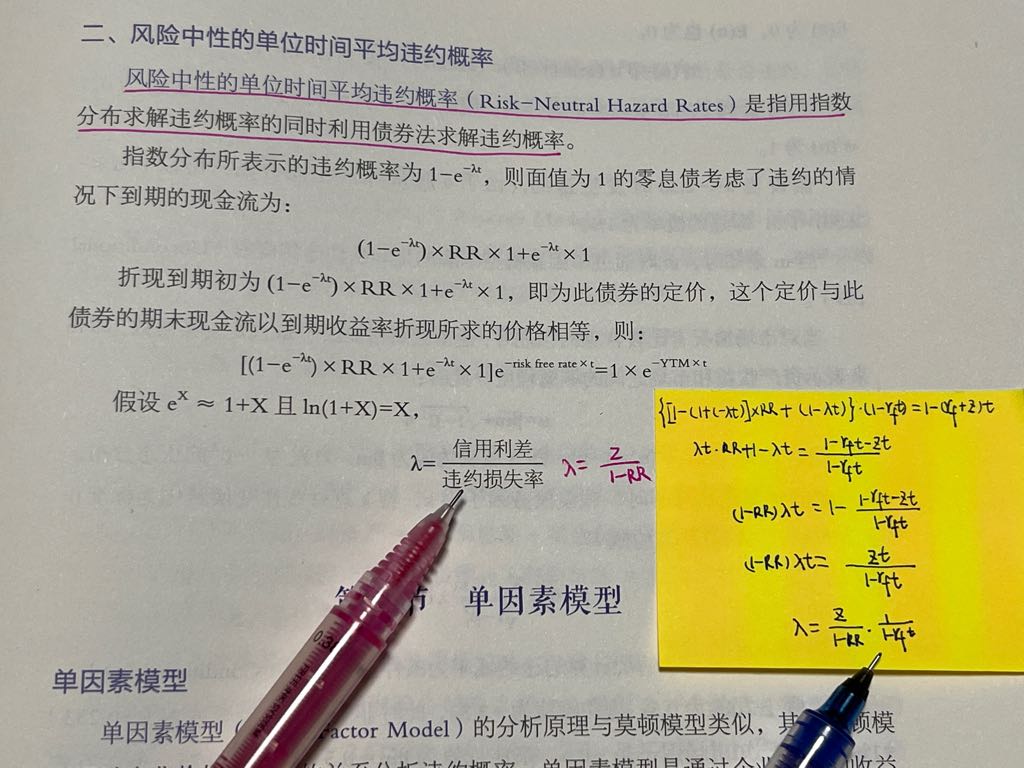 二、风险中性的单位时间平均违约概率
风险中性的单位时间平均违约概率（Risk-Neutral Hazard Rates）是指用指数
分布求解违约概率的同时利用债券法求解违约概率。
指数分布所表示的违约概率为1-e^{-λt}，则面值为1的零息债考虑了违约的情
况下到期的现金流为：
(1-e^{-λt})×RR×1+e^{-λt}×1
折现到期初为(1-e^{-λt})×RR×1+e^{-λt}×1，即为此债券的定价，这个定价与此
债券的期末现金流以到期收益率折现所求的价格相等，则：
[(1-e^{-λt})×RR×1+e^{-λt}×1]e^{-risk free rate×t}=1×e^{-YTM×t}
假设 e^X ≈ 1+X 且 ln(1+X)=X，
λ=信用利差/违约损失率 λ = z/(1-RR)
{[1-(1+(-λt)]×RR + (1-λt)}·(1-r_f t) = 1-(r_f+z)t
λt·RR+1-λt = (1-r_f t-zt)/(1-r_f t)
(1-RR)λt = 1- (1-r_f t-zt)/(1-r_f t)
(1-RR)λt = zt/(1-r_f t)
λ = z/(1-RR) · 1/(1-r_f t)
节 单因素模型
单因素模型
单因素模型（ Factor Model）的分析原理与莫顿模型类似，其 顿模
0.38